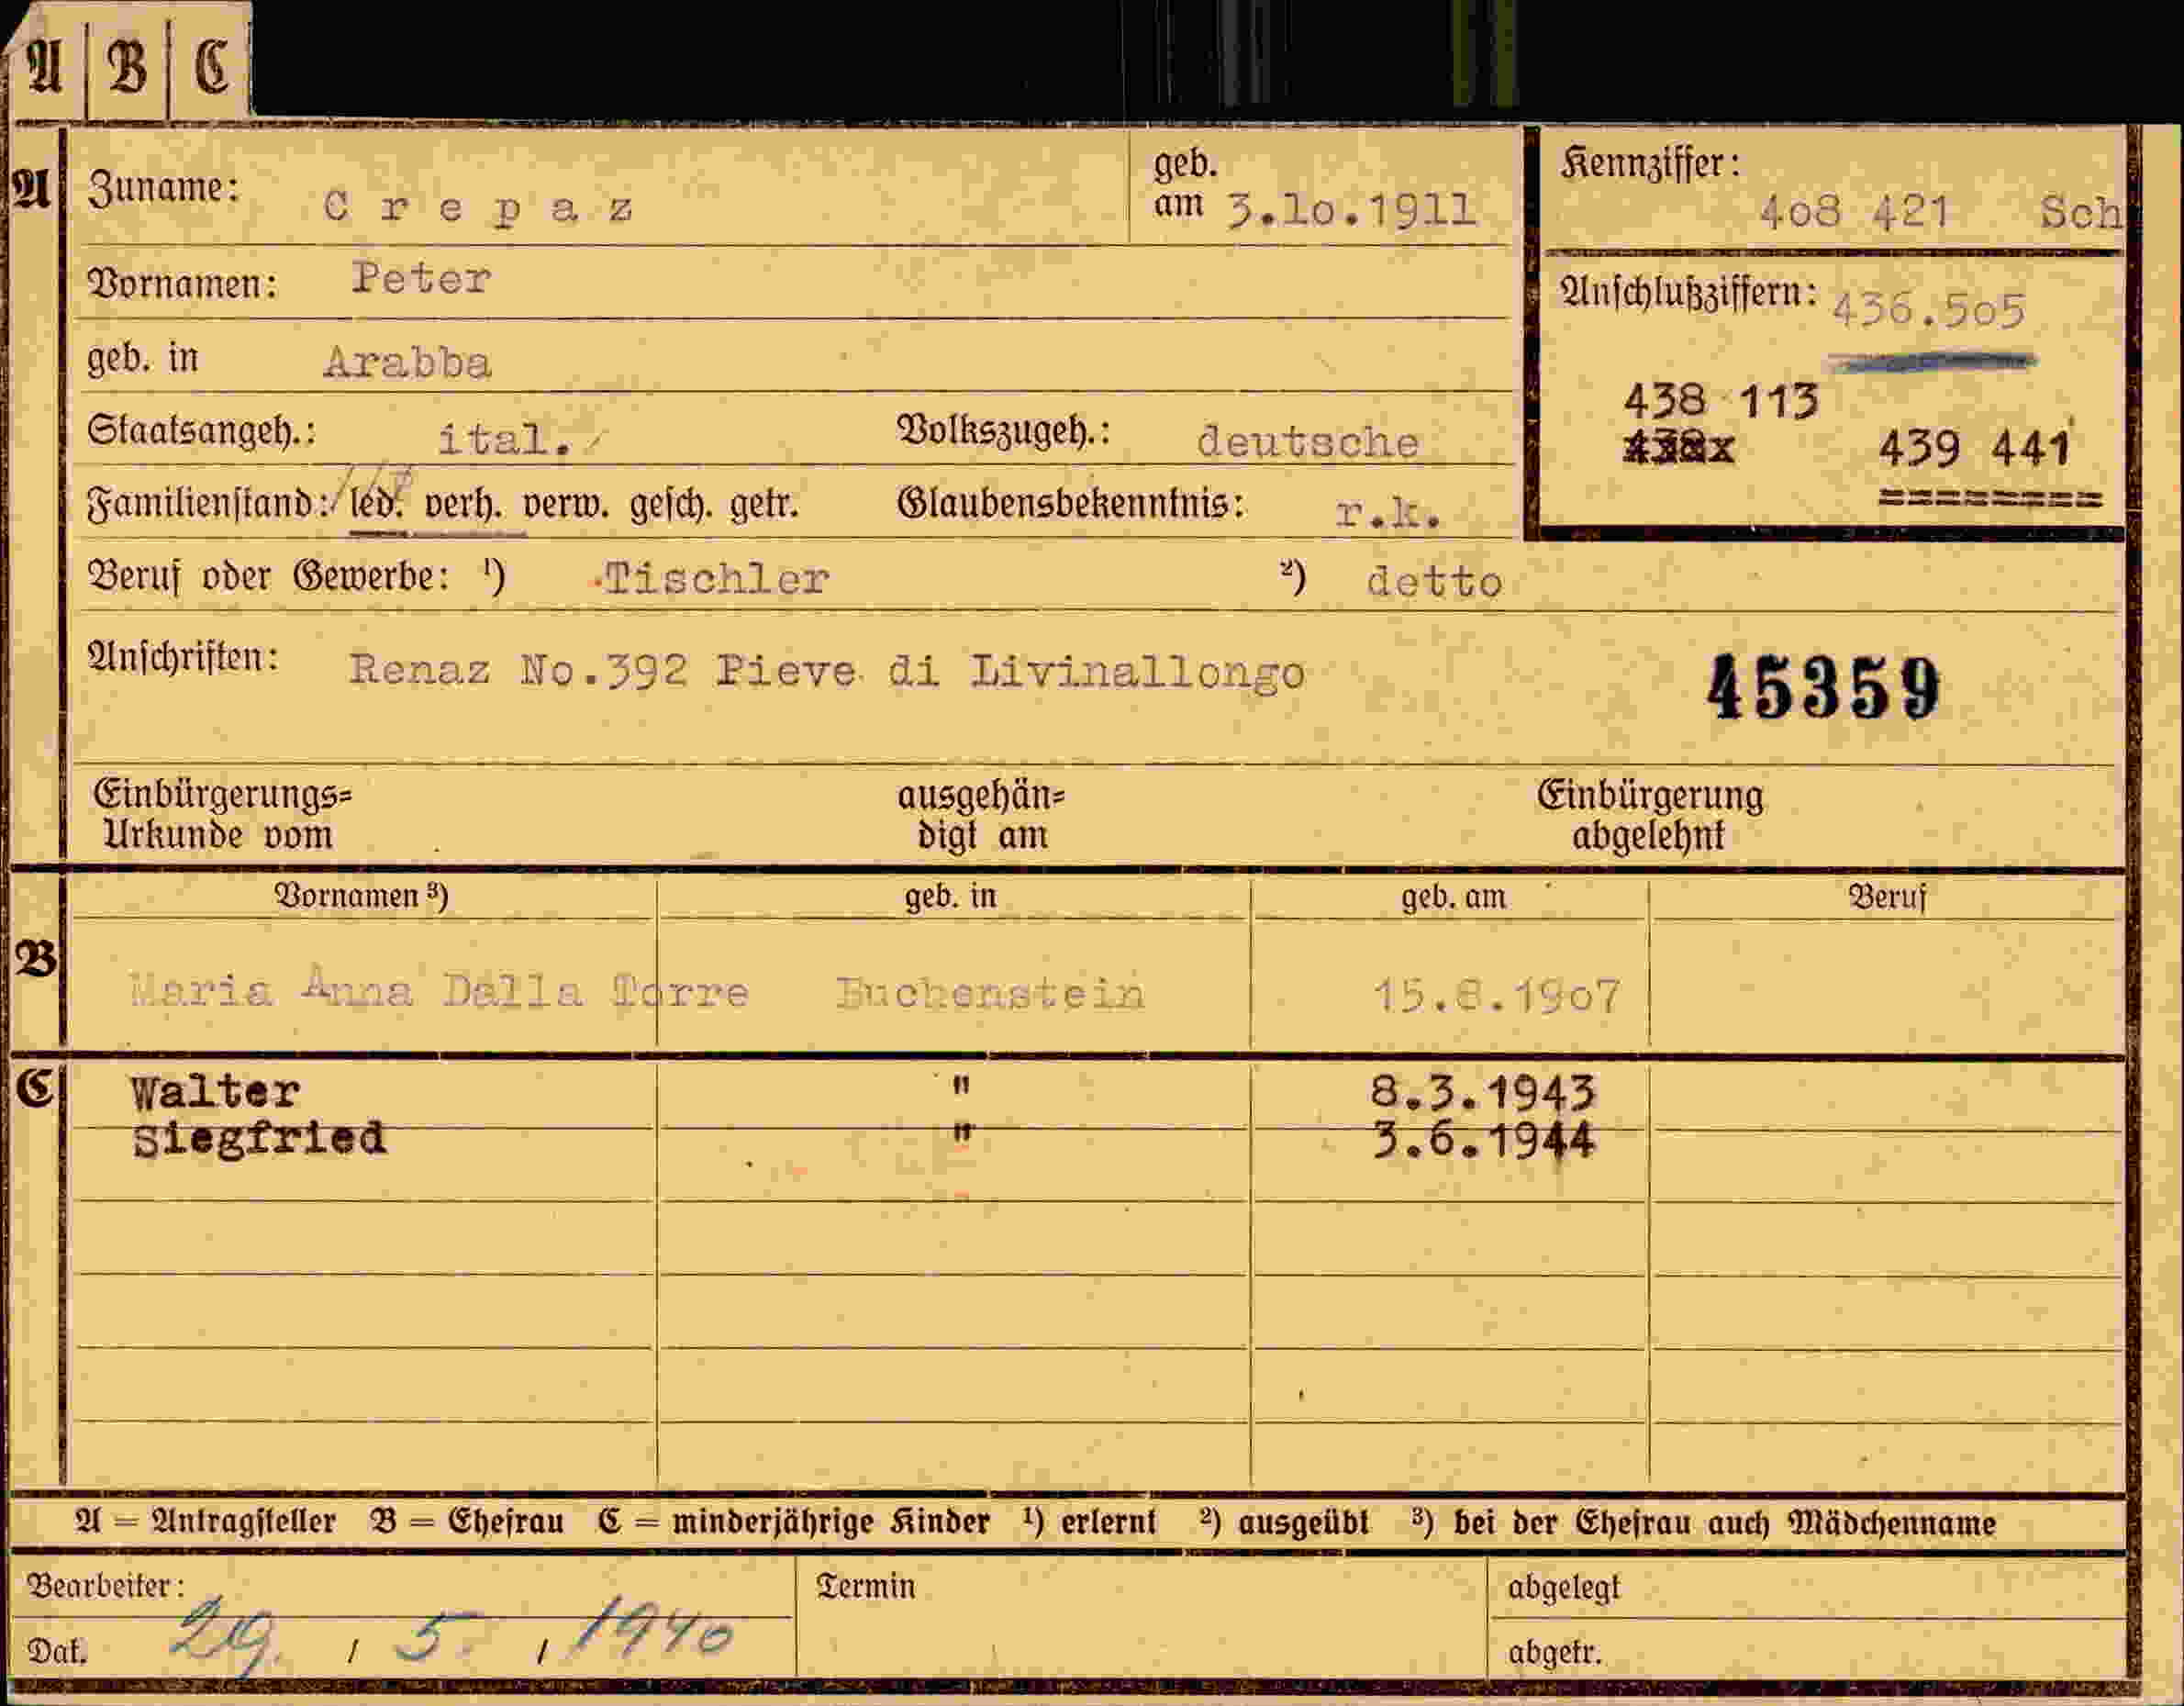 A | B | C
A Zuname: Crepaz geb. am 3.10.1911 Kennziffer: 408 421 Sch
Vornamen: Peter Anschlußziffern: 436.505
geb. in Arabba
438 113
Staatsangeh.: ital. Volkszugeh.: deutsche 439 441
========
Familienstand: led. verh. verw. gesch. getr. Glaubensbekenntnis: r.k.
Beruf oder Gewerbe: ¹) Tischler ²) detto
Anschriften: Renaz No.392 Pieve di Livinallongo 45359
Einbürgerungs= ausgehän= Einbürgerung
Urkunde vom digt am abgelehnt
Vornamen ³) geb. in geb. am Beruf
B Maria Anna Dalla Torre Buchenstein 15.8.1907
C Walter " 8.3.1943
Siegfried " 3.6.1944
A = Antragsteller B = Ehefrau C = minderjährige Kinder ¹) erlernt ²) ausgeübt ³) bei der Ehefrau auch Mädchenname
Bearbeiter: Termin abgelegt
Dat. 29. / 5. / 1940 abgetr.